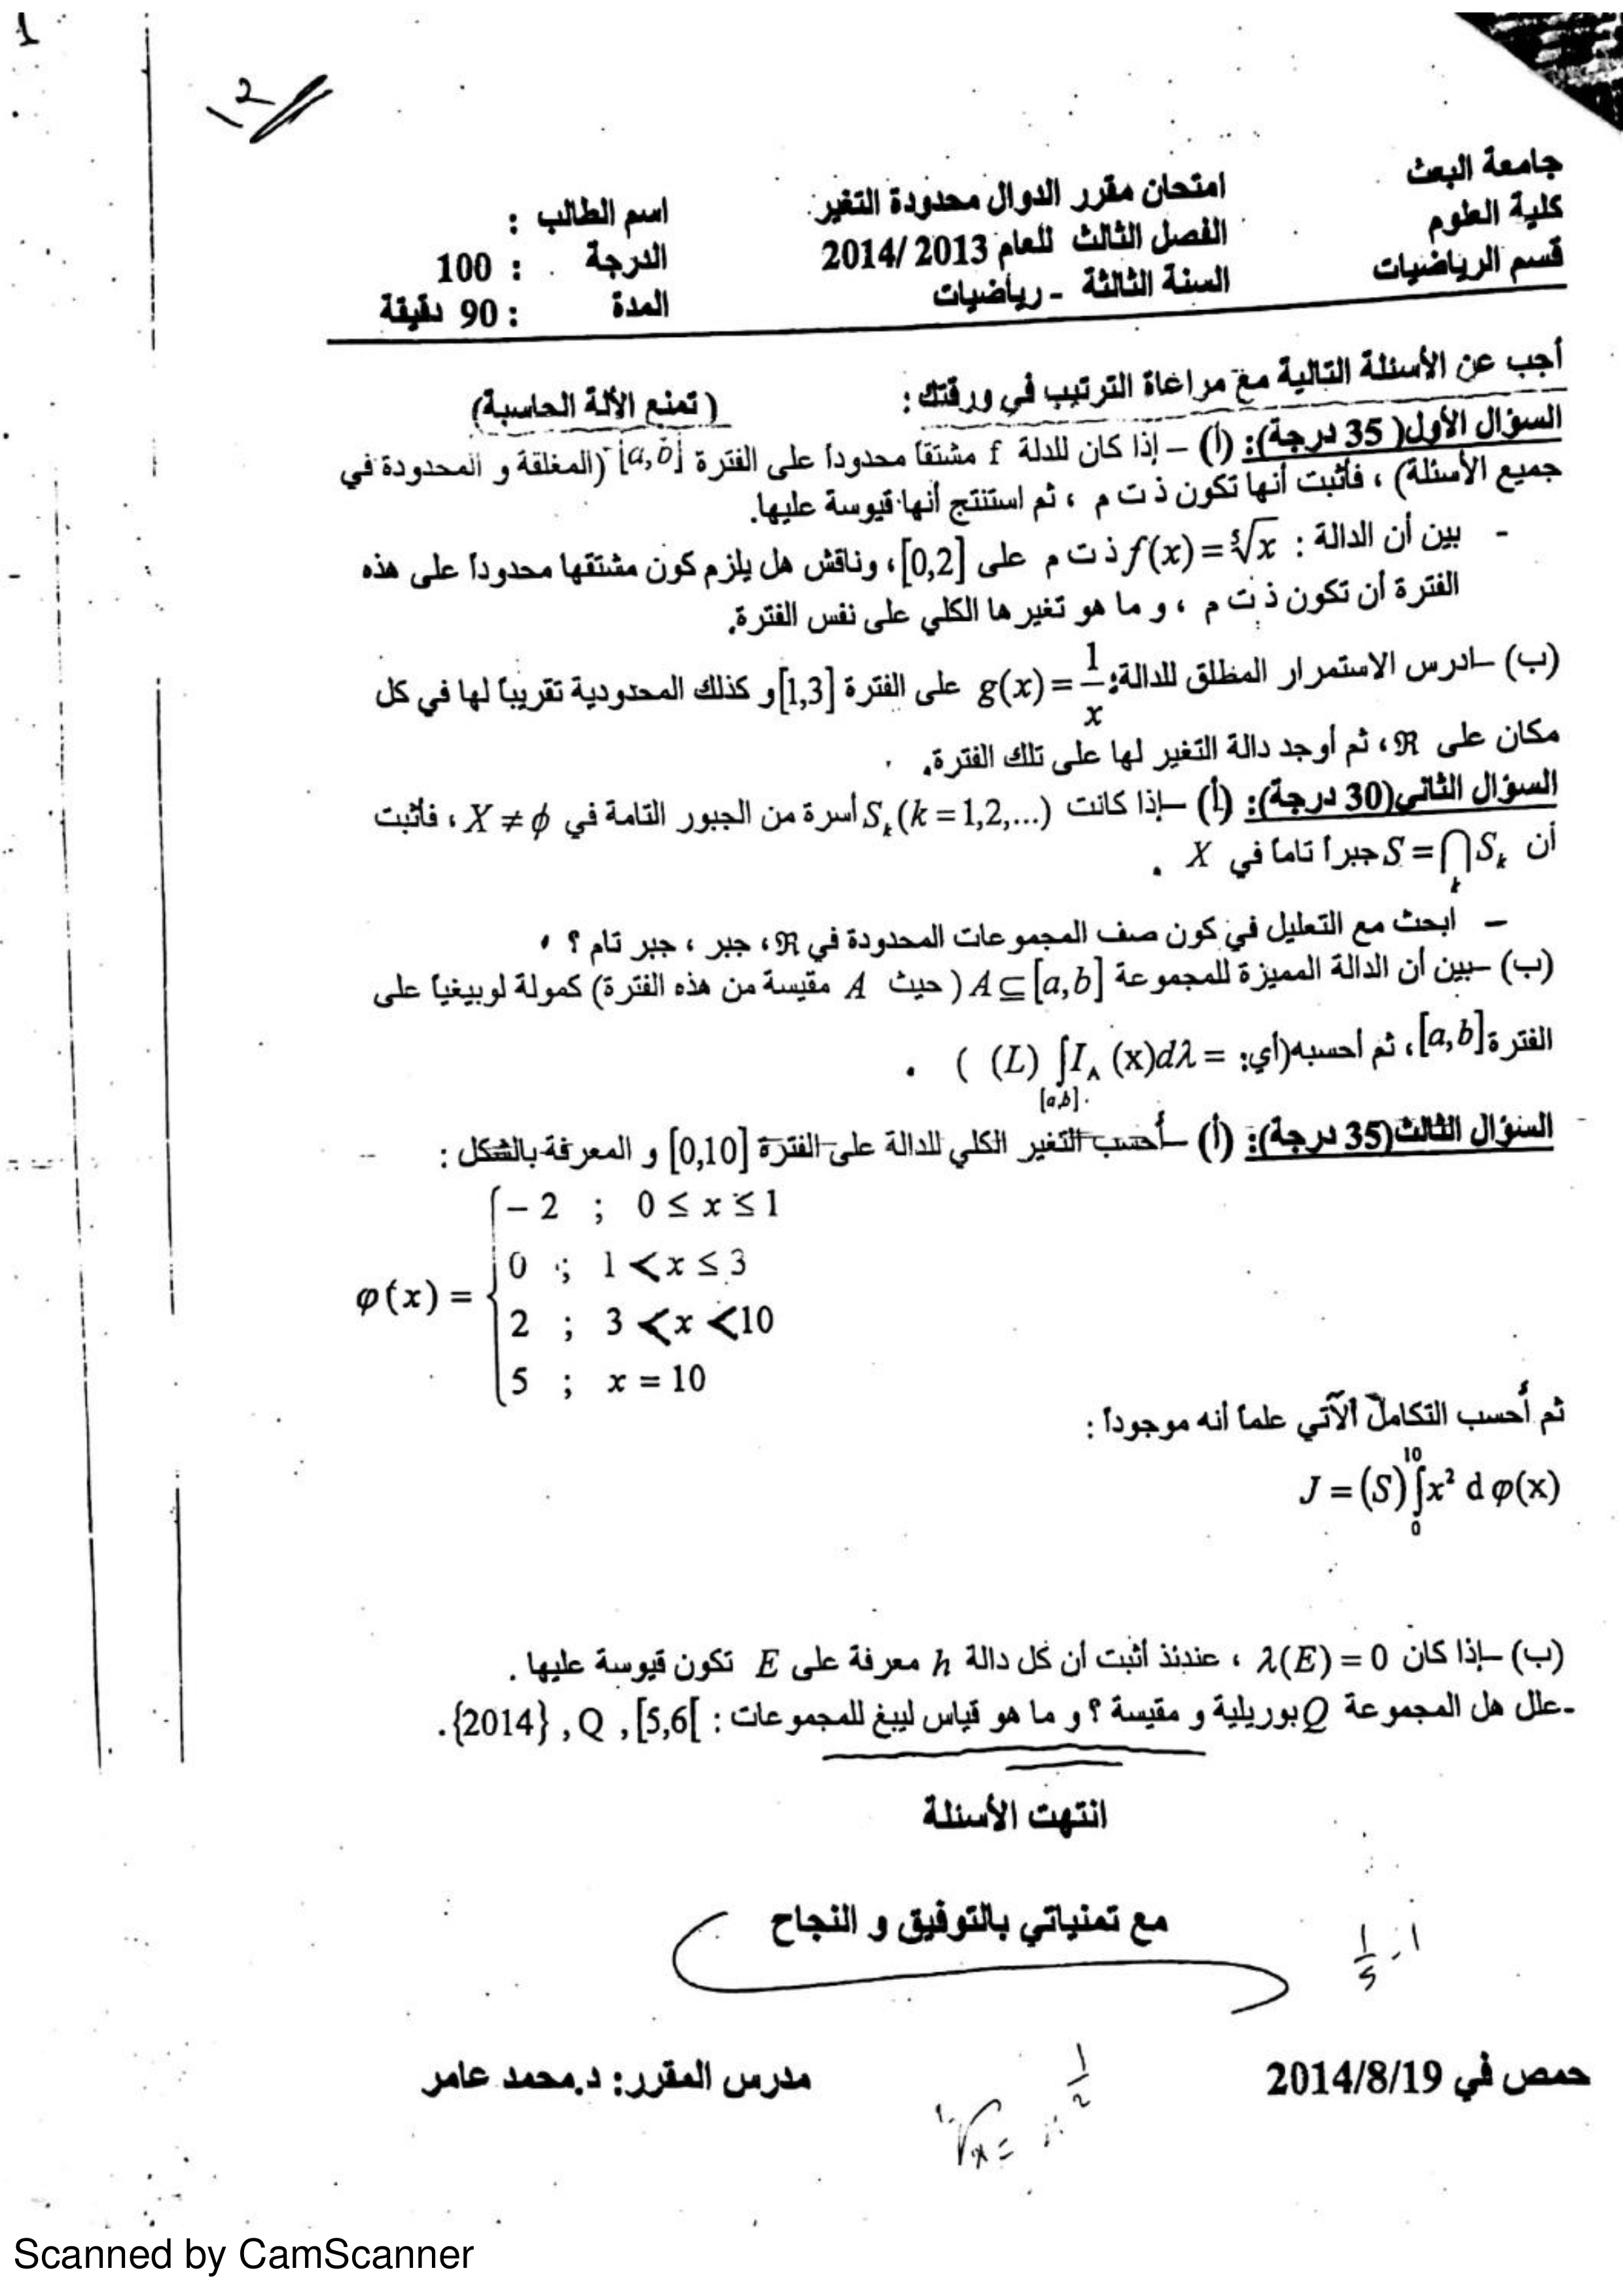 1
2
جامعة البعث
كلية العلوم
قسم الرياضيات
امتحان مقرر الدوال محدودة التغير
الفصل الثالث للعام 2013 /2014
السنة الثالثة - رياضيات
اسم الطالب :
الدرجة : 100
المدة : 90 دقيقة
أجب عن الأسئلة التالية مع مراعاة الترتيب في ورقتك : ( تمنع الألة الحاسبة)
السؤال الأول( 35 درجة): (أ) – إذا كان للدلة f مشتقاً محدوداً على الفترة [a,b] (المغلقة و المحدودة في
جميع الأسئلة) ، فأثبت أنها تكون ذ ت م ، ثم استنتج أنها قيوسة عليها.
- بين أن الدالة : f(x) = ⁵√x ذ ت م على [0,2]، وناقش هل يلزم كون مشتقها محدوداً على هذه
الفترة أن تكون ذ ت م ، و ما هو تغيرها الكلي على نفس الفترة.
(ب) –ادرس الاستمرار المطلق للدالة: g(x) = 1/x على الفترة [1,3] و كذلك المحدودية تقريباً لها في كل
مكان على ℜ ، ثم أوجد دالة التغير لها على تلك الفترة.
السؤال الثاني(30 درجة): (أ) –إذا كانت S_k (k = 1,2,...) أسرة من الجبور التامة في X ≠ ϕ ، فأثبت
أن S = ⋂_k S_k جبراً تاماً في X .
– ابحث مع التعليل في كون صف المجموعات المحدودة في ℜ ، جبر ، جبر تام ؟
(ب) –بين أن الدالة المميزة للمجموعة A ⊆ [a,b] ( حيث A مقيسة من هذه الفترة) كمولة لوبيغياً على
الفترة [a,b] ، ثم أحسبه(أي: = (L) ∫_[a,b] I_A (x)dλ ) .
السؤال الثالث(35 درجة): (أ) –أحسب التغير الكلي للدالة على الفترة [0,10] و المعرفة بالشكل :
φ(x) = {
– 2 ; 0 ≤ x ≤ 1
0 ; 1 < x ≤ 3
2 ; 3 < x < 10
5 ; x = 10
ثم أحسب التكامل الآتي علماً أنه موجوداً :
J = (S) ∫_0^10 x² d φ(x)
(ب) –إذا كان λ(E) = 0 ، عندئذ أثبت أن كل دالة h معرفة على E تكون قيوسة عليها .
-علل هل المجموعة Q بوريلية و مقيسة ؟ و ما هو قياس ليبغ للمجموعات : [5,6[ , Q , {2014}.
انتهت الأسئلة
مع تمنياتي بالتوفيق و النجاح
حمص في 2014/8/19
مدرس المقرر: د.محمد عامر
Scanned by CamScanner